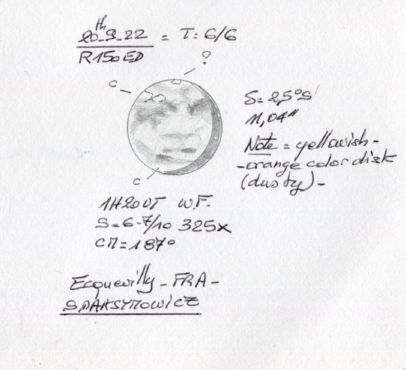 20th-9-22 = T: 6/6
R150ED
?
C
S= 2,5°S
11,04"
Note = yellowish-
-orange color disk
(dusty)-
C
1H20UT W.F.
S=6-7/10 325X
CM=187°
Ecquevilly-FRA-
SMAKSYMOWICZ